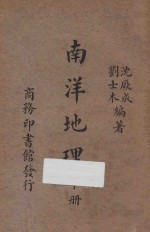 沈厥成
劉士木編著
南洋地理冊
商務印書館發行